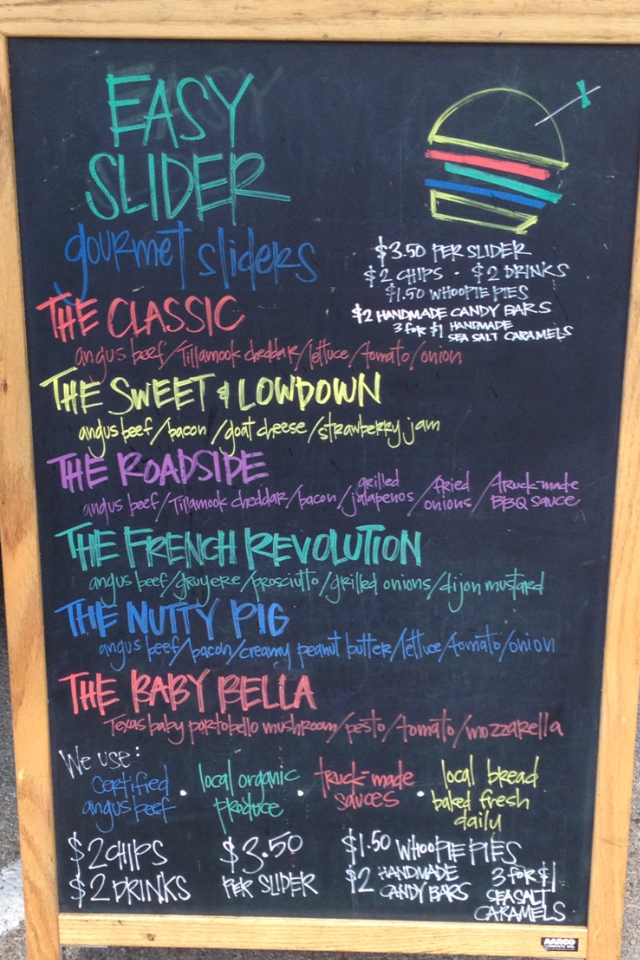 EASY
SLIDER
gourmet sliders
$3.50 PER SLIDER
$2 CHIPS · $2 DRINKS
$1.50 WHOOPIE PIES
$2 HANDMADE CANDY BARS
3 FOR $1 HANDMADE
SEA SALT CARAMELS
THE CLASSIC
angus beef/Tillamook cheddar/lettuce/tomato/onion
THE SWEET & LOWDOWN
angus beef/bacon/goat cheese/strawberry jam
THE ROADSIDE
angus beef/Tillamook cheddar/bacon/grilled jalapenos/fried onions/truck-made BBQ sauce
THE FRENCH REVOLUTION
angus beef/gruyere/prosciutto/grilled onions/dijon mustard
THE NUTTY PIG
angus beef/bacon/creamy peanut butter/lettuce/tomato/onion
THE BABY BELLA
Texas baby portobello mushroom/pesto/tomato/mozzarella
We use:
certified angus beef · local organic produce · truck-made sauces · local bread baked fresh daily
$2 CHIPS
$2 DRINKS
$3.50
PER SLIDER
$1.50 WHOOPIE PIES
$2 HANDMADE
CANDY BARS
3 FOR $1
SEA SALT
CARAMELS
AARCO